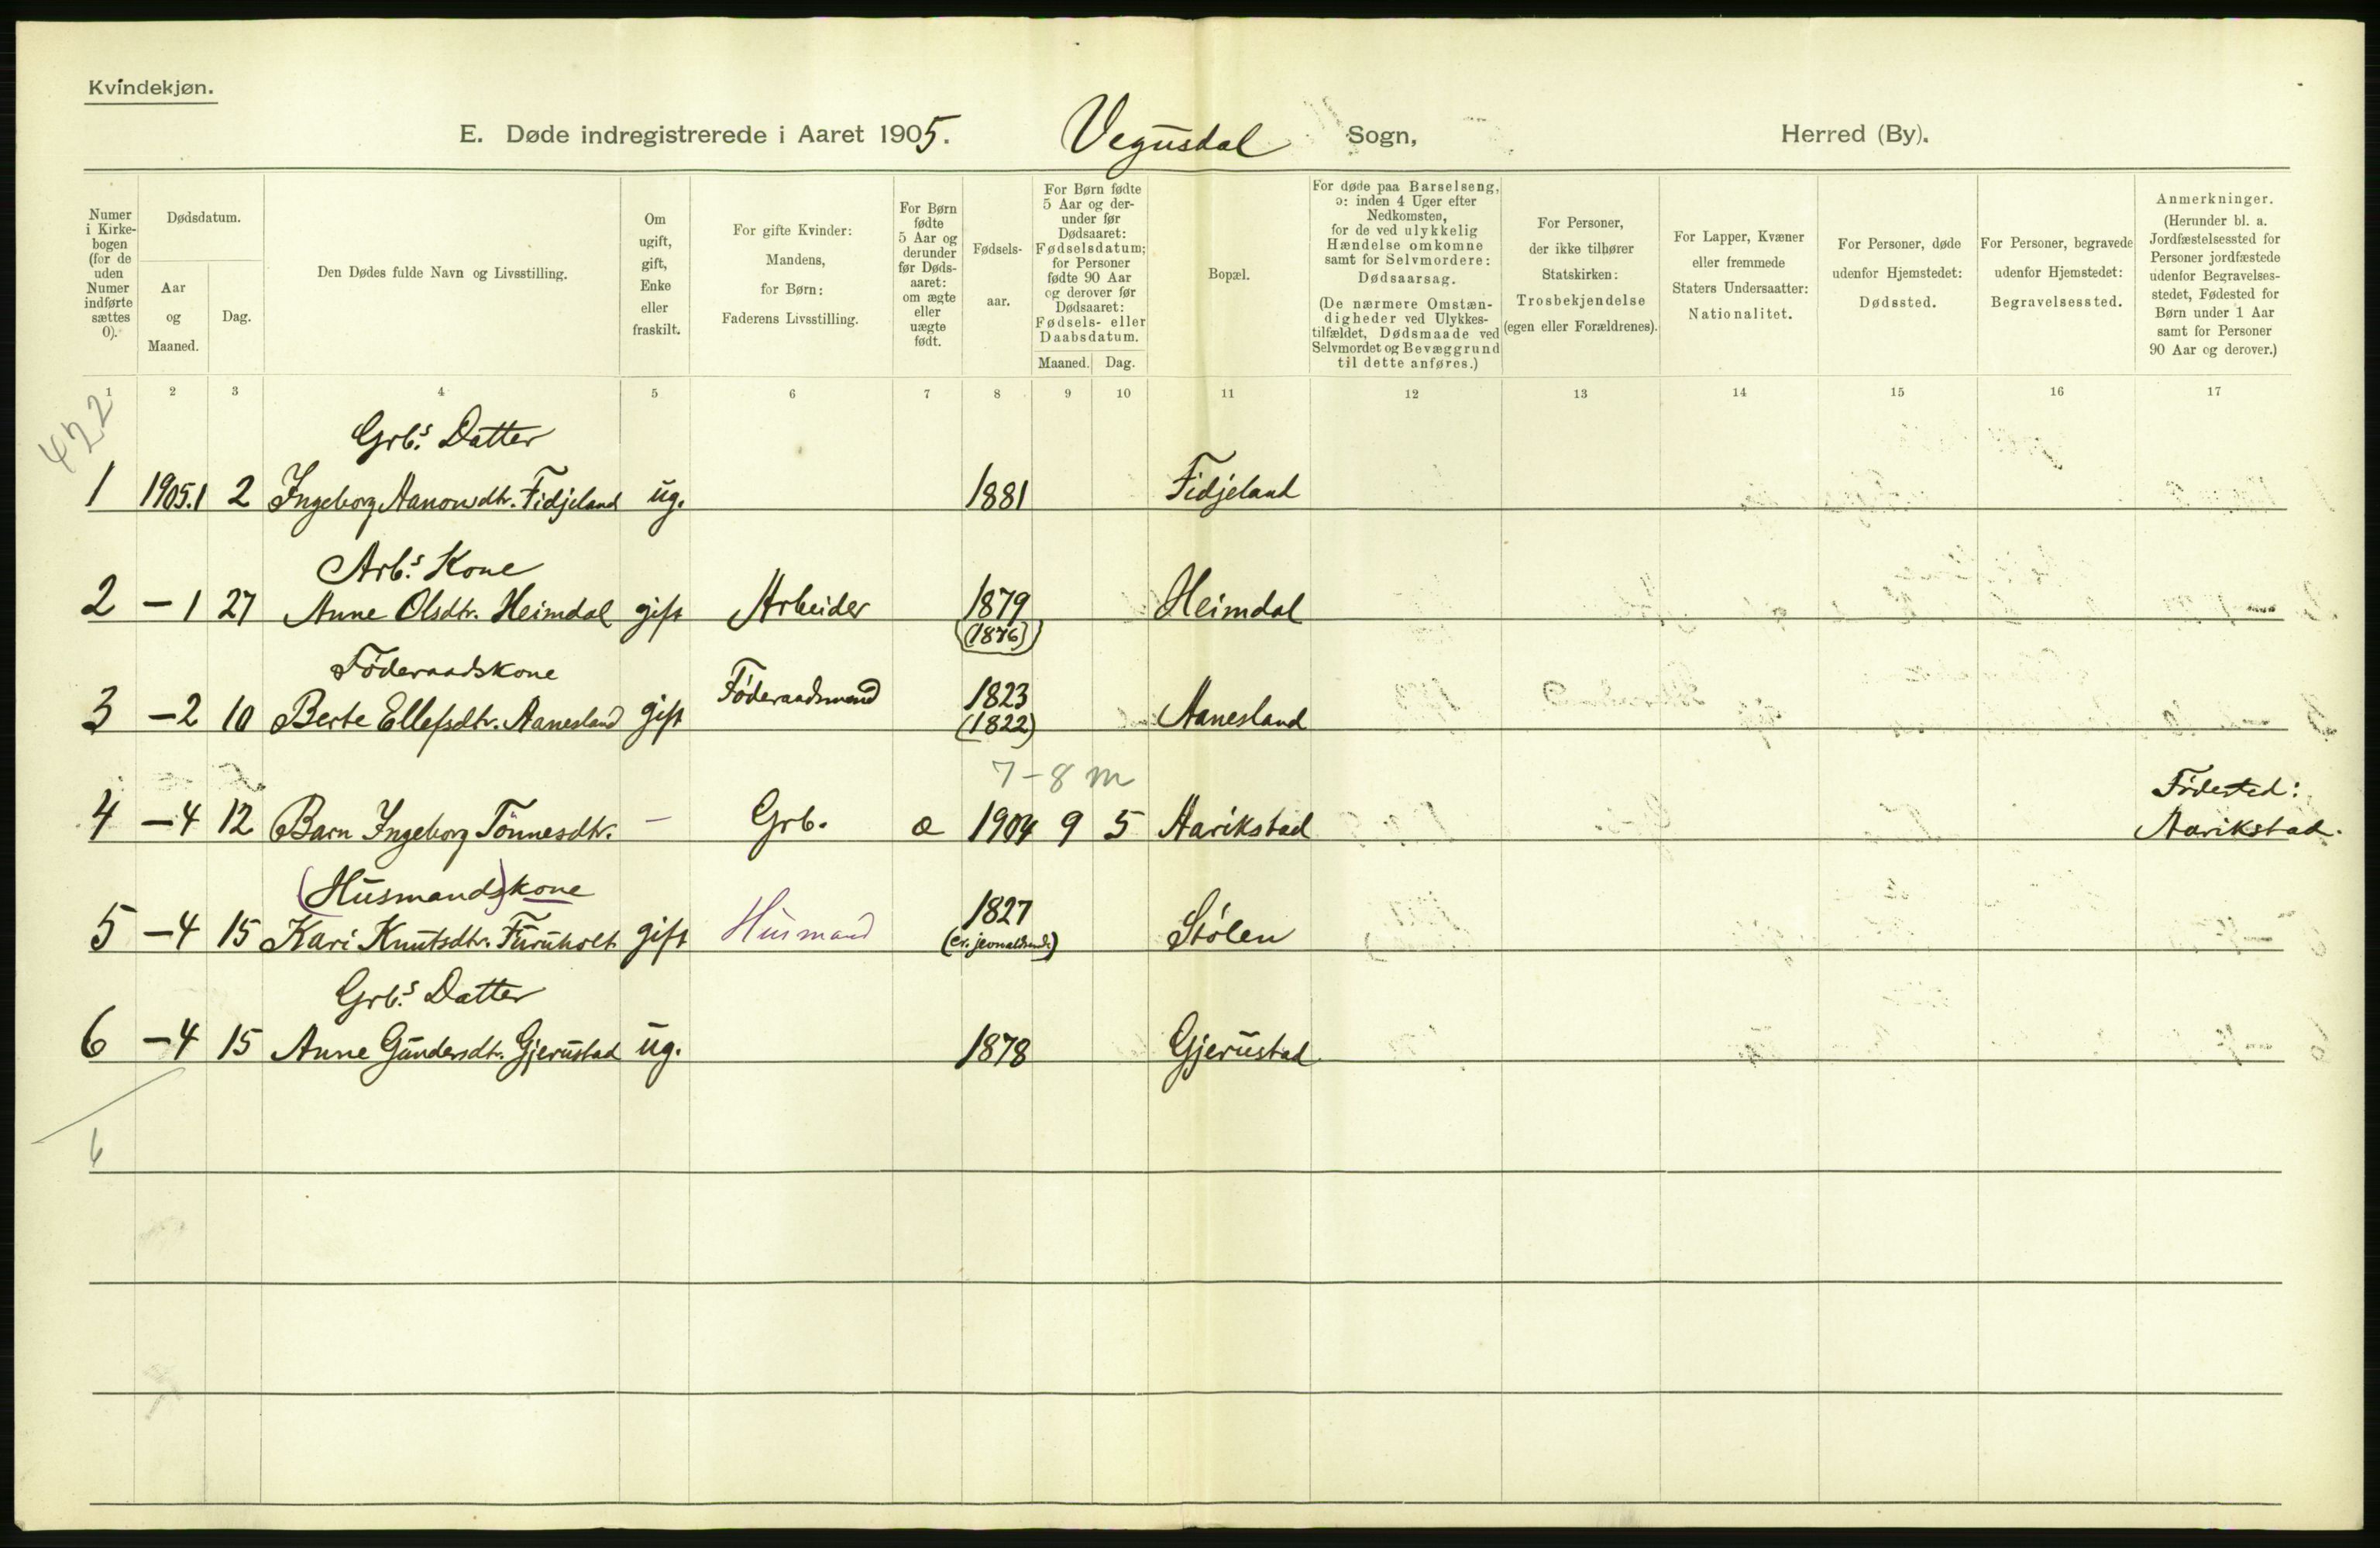 Kvindekjøn.
E. Døde indregistrerede i Aaret 1905. Vegusdal Sogn, Herred (By).
Numer i Kirkebogen (for de uden Numer indførte sættes 0).
Dødsdatum.
Aar og Maaned.
Dag.
Den Dødes fulde Navn og Livsstilling.
Om ugift, gift, Enke eller fraskilt.
For gifte Kvinder: Mandens, for Børn: Faderens Livsstilling.
For Børn fødte 5 Aar og derunder før Dødsaaret: om ægte eller uægte født.
Fødselsaar.
For Børn fødte 5 Aar og derunder før Dødsaaret: Fødselsdatum; for Personer fødte 90 Aar og derover før Dødsaaret: Fødsels- eller Daabsdatum.
Maaned. Dag.
Bopæl.
For døde paa Barselseng, ɔ: inden 4 Uger efter Nedkomsten, for de ved ulykkelig Hændelse omkomne samt for Selvmordere: Dødsaarsag.
(De nærmere Omstændigheder ved Ulykkestilfældet, Dødsmaade ved Selvmordet og Bevæggrund til dette anføres.)
For Personer, der ikke tilhører Statskirken: Trosbekjendelse (egen eller Forældrenes).
For Lapper, Kvæner eller fremmede Staters Undersaatter: Nationalitet.
For Personer, døde udenfor Hjemstedet: Dødssted.
For Personer, begravede udenfor Hjemstedet: Begravelsessted.
Anmerkninger.
(Herunder bl. a. Jordfæstelsessted for Personer jordfæstede udenfor Begravelsesstedet, Fødested for Børn under 1 Aar samt for Personer 90 Aar og derover.)
1 2 3 4 5 6 7 8 9 10 11 12 13 14 15 16 17
422
Grb.s Datter
1 1905.1 2 Ingeborg Aanonsdtr. Fidjeland ug. 1881 Fidjeland
Arb.s Kone
2 – 1 27 Anne Olsdtr. Heimdal gift Arbeider 1879 Heimdal
(1876)
Föderaadskone
3 – 2 10 Berte Ellefsdtr. Aanesland gift Föderaadsmand 1823 Aanesland
(1822)
7–8 m
Födested:
4 – 4 12 Barn Ingeborg Tönnesdtr. – Grb. æ 1904 9 5 Aarikstad Aarikstad.
(Husmands)kone
5 – 4 15 Kari Knutsdtr. Furuholt gift Husmand 1827 Stólen
Grb.s Datter
6 – 4 15 Anne Gundersdtr. Gjerustad ug. 1878 Gjerustad
6